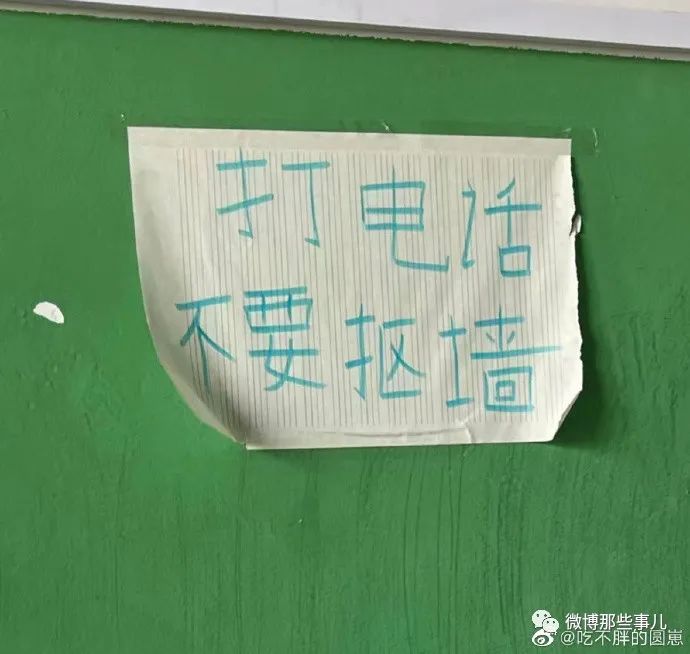 打电话
不要抠墙
微博那些事儿
@吃不胖的圆崽